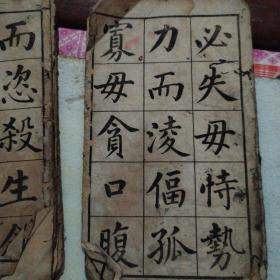 必失毋恃勢
力而淩偪孤
寡毋貪口腹
而恣殺生